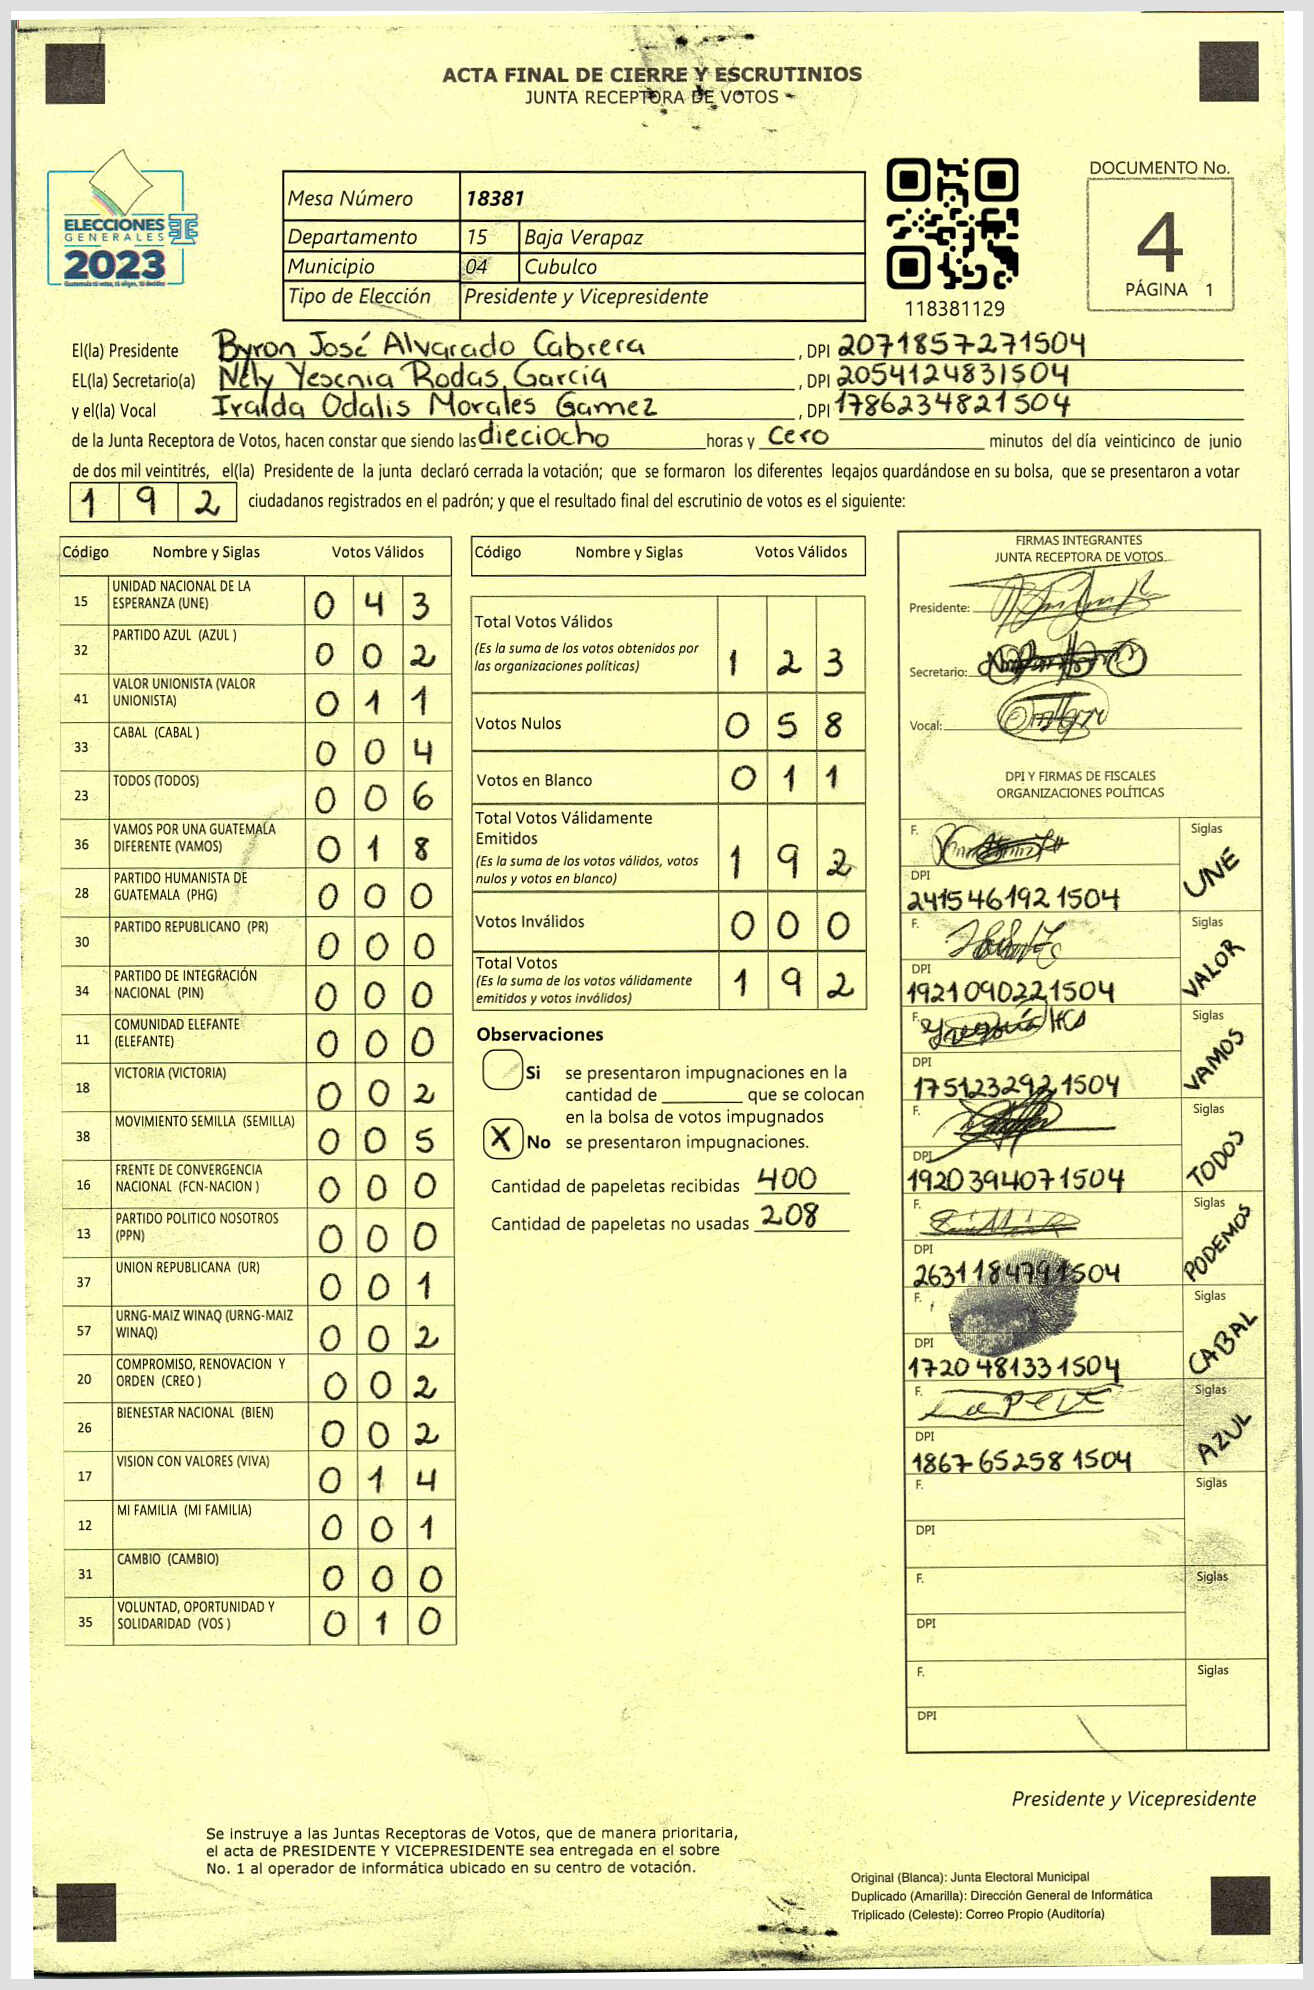 ACTA FINAL DE CIERRE Y ESCRUTINIOS
JUNTA RECEPTORA DE VOTOS
ELECCIONES
GENERALES
2023
Mesa Número 18381
Departamento 15 Baja Verapaz
Municipio 04 Cubulco
Tipo de Elección Presidente y Vicepresidente
118381129
DOCUMENTO No.
4
PÁGINA 1
El(la) Presidente Byron José Alvarado Cabrera, DPI 2071857271504
EL(la) Secretario(a) Nely Yesenia Rodas García, DPI 2054124831504
y el(la) Vocal Iralda Odalis Morales Gamez, DPI 1786234821504
de la Junta Receptora de Votos, hacen constar que siendo las dieciocho horas y cero minutos del día veinticinco de junio
de dos mil veintitrés, el(la) Presidente de la junta declaró cerrada la votación; que se formaron los diferentes legajos guardándose en su bolsa, que se presentaron a votar
192 ciudadanos registrados en el padrón; y que el resultado final del escrutinio de votos es el siguiente:
Código Nombre y Siglas Votos Válidos
15 UNIDAD NACIONAL DE LA ESPERANZA (UNE) 0 4 3
32 PARTIDO AZUL (AZUL ) 0 0 2
41 VALOR UNIONISTA (VALOR UNIONISTA) 0 1 1
33 CABAL (CABAL ) 0 0 4
23 TODOS (TODOS) 0 0 6
36 VAMOS POR UNA GUATEMALA DIFERENTE (VAMOS) 0 1 8
28 PARTIDO HUMANISTA DE GUATEMALA (PHG) 0 0 0
30 PARTIDO REPUBLICANO (PR) 0 0 0
34 PARTIDO DE INTEGRACIÓN NACIONAL (PIN) 0 0 0
11 COMUNIDAD ELEFANTE (ELEFANTE) 0 0 0
18 VICTORIA (VICTORIA) 0 0 2
38 MOVIMIENTO SEMILLA (SEMILLA) 0 0 5
16 FRENTE DE CONVERGENCIA NACIONAL (FCN-NACION ) 0 0 0
13 PARTIDO POLITICO NOSOTROS (PPN) 0 0 0
37 UNION REPUBLICANA (UR) 0 0 1
57 URNG-MAIZ WINAQ (URNG-MAIZ WINAQ) 0 0 2
20 COMPROMISO, RENOVACION Y ORDEN (CREO ) 0 0 2
26 BIENESTAR NACIONAL (BIEN) 0 0 2
17 VISION CON VALORES (VIVA) 0 1 4
12 MI FAMILIA (MI FAMILIA) 0 0 1
31 CAMBIO (CAMBIO) 0 0 0
35 VOLUNTAD, OPORTUNIDAD Y SOLIDARIDAD (VOS ) 0 1 0
Código Nombre y Siglas Votos Válidos
Total Votos Válidos
(Es la suma de los votos obtenidos por
las organizaciones políticas) 1 2 3
Votos Nulos 0 5 8
Votos en Blanco 0 1 1
Total Votos Válidamente
Emitidos
(Es la suma de los votos válidos, votos
nulos y votos en blanco) 1 9 2
Votos Inválidos 0 0 0
Total Votos
(Es la suma de los votos válidamente
emitidos y votos inválidos) 1 9 2
Observaciones
Si se presentaron impugnaciones en la
cantidad de ________ que se colocan
en la bolsa de votos impugnados
X No se presentaron impugnaciones.
Cantidad de papeletas recibidas 400
Cantidad de papeletas no usadas 208
FIRMAS INTEGRANTES
JUNTA RECEPTORA DE VOTOS
Presidente:
Secretario:
Vocal:
DPI Y FIRMAS DE FISCALES
ORGANIZACIONES POLÍTICAS
F. Siglas UNE
DPI
2415461921504
F. Siglas VALOR
DPI
1921090221504
F. Siglas VAMOS
DPI
1751232921504
F. Siglas TODOS
DPI
1920394071504
F. Siglas PODEMOS
DPI
2631184791504
F. Siglas CABAL
DPI
1720481331504
F. Siglas AZUL
DPI
1867652581504
F. Siglas
DPI
F. Siglas
DPI
F. Siglas
DPI
Presidente y Vicepresidente
Se instruye a las Juntas Receptoras de Votos, que de manera prioritaria,
el acta de PRESIDENTE Y VICEPRESIDENTE sea entregada en el sobre
No. 1 al operador de informática ubicado en su centro de votación.
Original (Blanca): Junta Electoral Municipal
Duplicado (Amarilla): Dirección General de Informática
Triplicado (Celeste): Correo Propio (Auditoría)